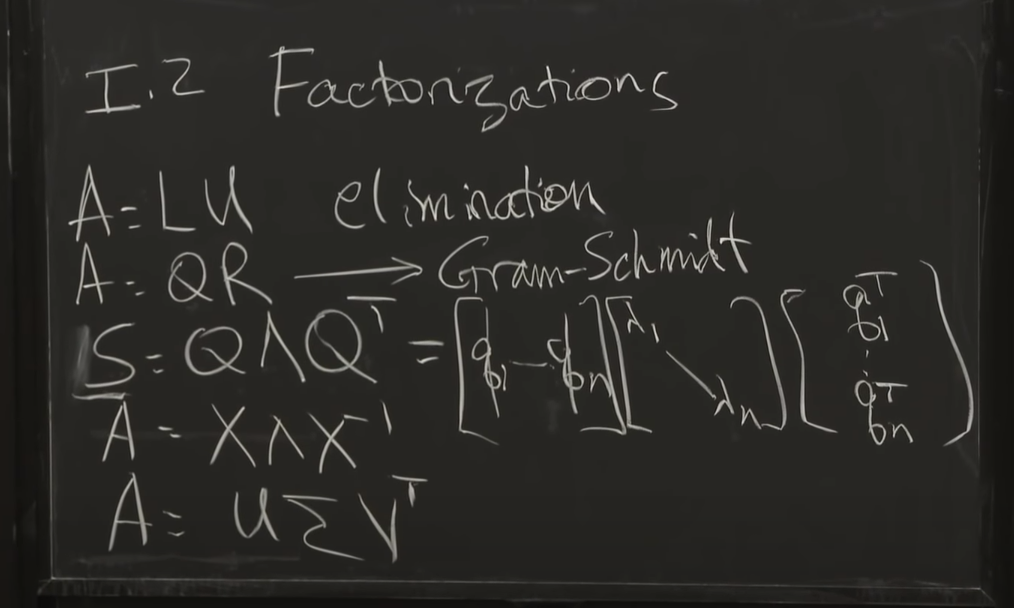 I.2 Factorizations
A = LU elimination
A = QR → Gram-Schmidt
S = QΛQᵀ = [q₁ — qₙ] [λ₁ \ λₙ] [q₁ᵀ ⋮ qₙᵀ]
A = XΛX⁻¹
A = UΣVᵀ